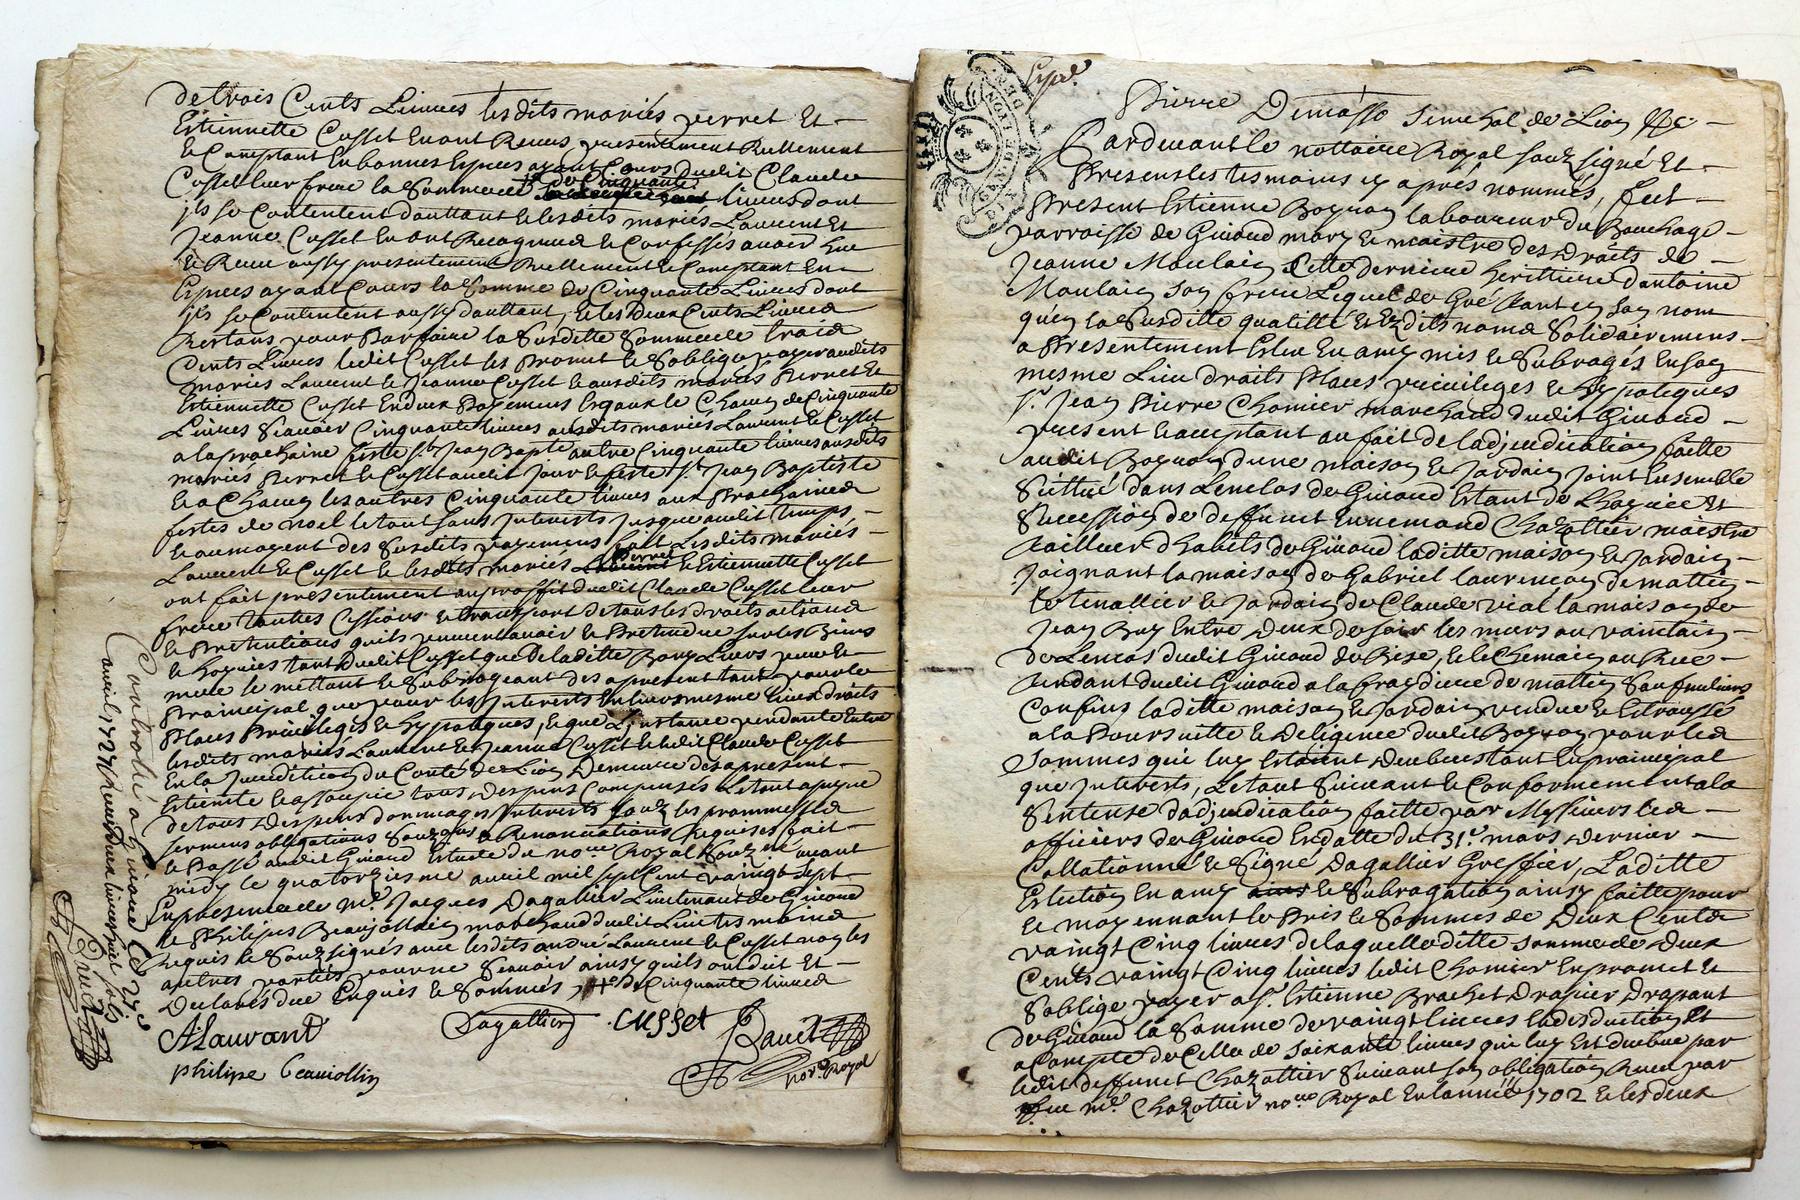 de trois Cents Livres lesdits mariés perret Et
Estiennette Cusset En ont Receu presentement Reellement
& Comptant En bonnes Especes ayant Cours dudit Claude
Cusset leur frere la Somme de Cinquante livres dont
ils se Contentent d'auttant & lesdits mariés Laurent Et
Jeanne Cusset En ont Recognu & Confessé avoir Eue
& Receu aussy presentement Reellement & Comptant En
Especes ayant Cours la Somme de Cinquante Livres dont
ils se Contentent aussy dauttant, & les deux Cents Livres
Restans pour Parfaire la Susditte Somme de trois
Cents Livres ledit Cusset les Promet & s'oblige payer ausdits
mariés Laurent & Jeanne Cusset & ausdits mariés Perret &
Estiennette Cusset En deux Payemens Esgaux le Chacun de Cinquante
Livres Scavoir Cinquante livres ausdits mariés Laurent & Cusset
a la prochaine feste St Jean Bapte autre Cinquante livres ausdits
mariés Perret & Cusset audit Jour & feste St Jean Baptiste
& a Chacun les autres Cinquante livres aux Prochaines
festes de noel le tout sans Interests Jusque audit temps
& au moyent des Susdits payemens fait lesdits mariés
Laurent & Cusset & lesdits mariés Perret & Estiennette Cusset
ont fait presentement au proffit dudit Claude Cusset leur
frere touttes Cessions & transport de tous les droits actions
& Pretentions quils peuvent avoir & Pretendre sur les Biens
& hoyries tant dudit Cusset que De laditte Leurs pere &
mere le mettant & Subrogeant des a present tant pour le
Praincipal que pour les Interests En leurs mesme Lieux droits
Places Privileges & hypotheques, & que L'instance pendante Entre
lesdits mariés Laurent & Jeanne Cusset & ledit Claude Cusset
En la Jurisdiction du Comte de Lion Demeure des a present
Estiente & assoupie tous Despens Compensés Le tout a peyne
de tous Despens dommages Interests Souz les prommesses
sermens obligations Souzmissions & Renonciations Requises fait
& Passé audit Givord Estude de nore Royal Souzné avant
midy le quatorziesme avril mil sept Cent vaingt sept
En presence de Mr Jacques Dagallier Lieutenant de Givord
& Philipes Beaujollin marchand dudit Lieu tesmoins
Requis & Souzsignés avec lesdits andré Laurent & Cusset non les
autres parties pour ne Scavoir ainsy quils ont dit Et
Declaré de ce Enquis & Sommés, de Cinquante livres
ALaurant Dagallier Cusset
philipe Beauiollin nore Royal
Controlé a Givord Ce 27e
avril 1727 Receu deux livres huit sols
Expé.
Pierre Demasso Senechal de Lion &c
Pardevant le nottaire Royal Souz signé Et
Presens les tesmoins cy aprés nommés, feut
Present Estienne laboureur du Bouchage
parroisse de Givord mary & maistre des Droits de
Jeanne Moulain Cette derniere heritiere d'antoine
Moulain son frere Lequel de Gré tant en son nom
quen la Susditte qualitté & Ezdits noms Solidairement
a Presentement Esleu En amy mis & Subrogés En son
mesme Lieu droits Places privileges & hypotheques
Sr Jean Pierre Chomier marchand dudit Givord
present & acceptant au fait de ladjudication faitte
audit d'une maison & Jardain Joint Ensemble
Scittué dans Lenclos de Givord Estant de L'hoyrie Et
Succession de deffunct Ennemond Chazottier maistre
tailleur d'habits de Givord laditte maison & Jardain
Joignant la maison de Gabriel laurençon de mattin
le tenallier & Jardain de Claude vial la maison de
Jean Entre deux de soir les murs au vaintain
de Lenclos dudit Givord de Bise, & le Chemain ou Rue
tendant dudit Givord a la de mattin Sauf meilleurs
Confins laditte maison & Jardain vendue & Estroussé
a la Poursuitte & Diligence dudit pour les
Sommes qui luy Estoient deubes tant En prainipal
que Interests, Le tout Suivant & Conformement a la
Sentense d'adjudication faitte par Messieurs les
officiers de Givord En datte du 31e mars dernier
Collationné & Signé Dagallier Greffier, Laditte
Eslection En amy & Subrogation ainsy faitte pour
& moyennant le Pris & Sommes de Deux Cents
vaingt Cinq livres de laquelle ditte somme de deux
Cents vaingt Cinq livres ledit Chomier En promet &
s'oblige payer a Sr Estienne Brachet Drapier Drapant
de Givord la Somme de vaingt livres En deduction Et
a Compte de Celle de soixante livres qui luy Est deubue par
ledit deffunct Chazottier Suivant son obligation Receu par
Me Chazottier nore Royal En lannée 1702 & les deux